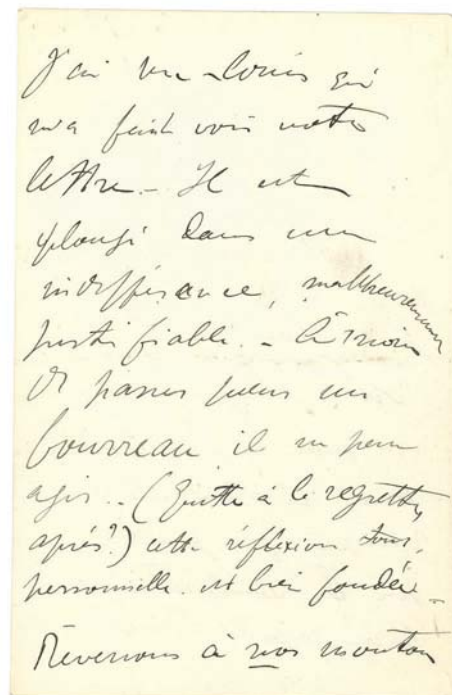 J'ai vu Louis qui
m'a fait voir votre
lettre - Il est
plongé dans une
indifférence, malheureusement
justifiable. - À moins
de passer pour un
bourreau il ne peut
agir.. (Quitte à le regretter
après?) cette réflexion toute
personnelle. est bien fondée -
Revenons à nos moutons